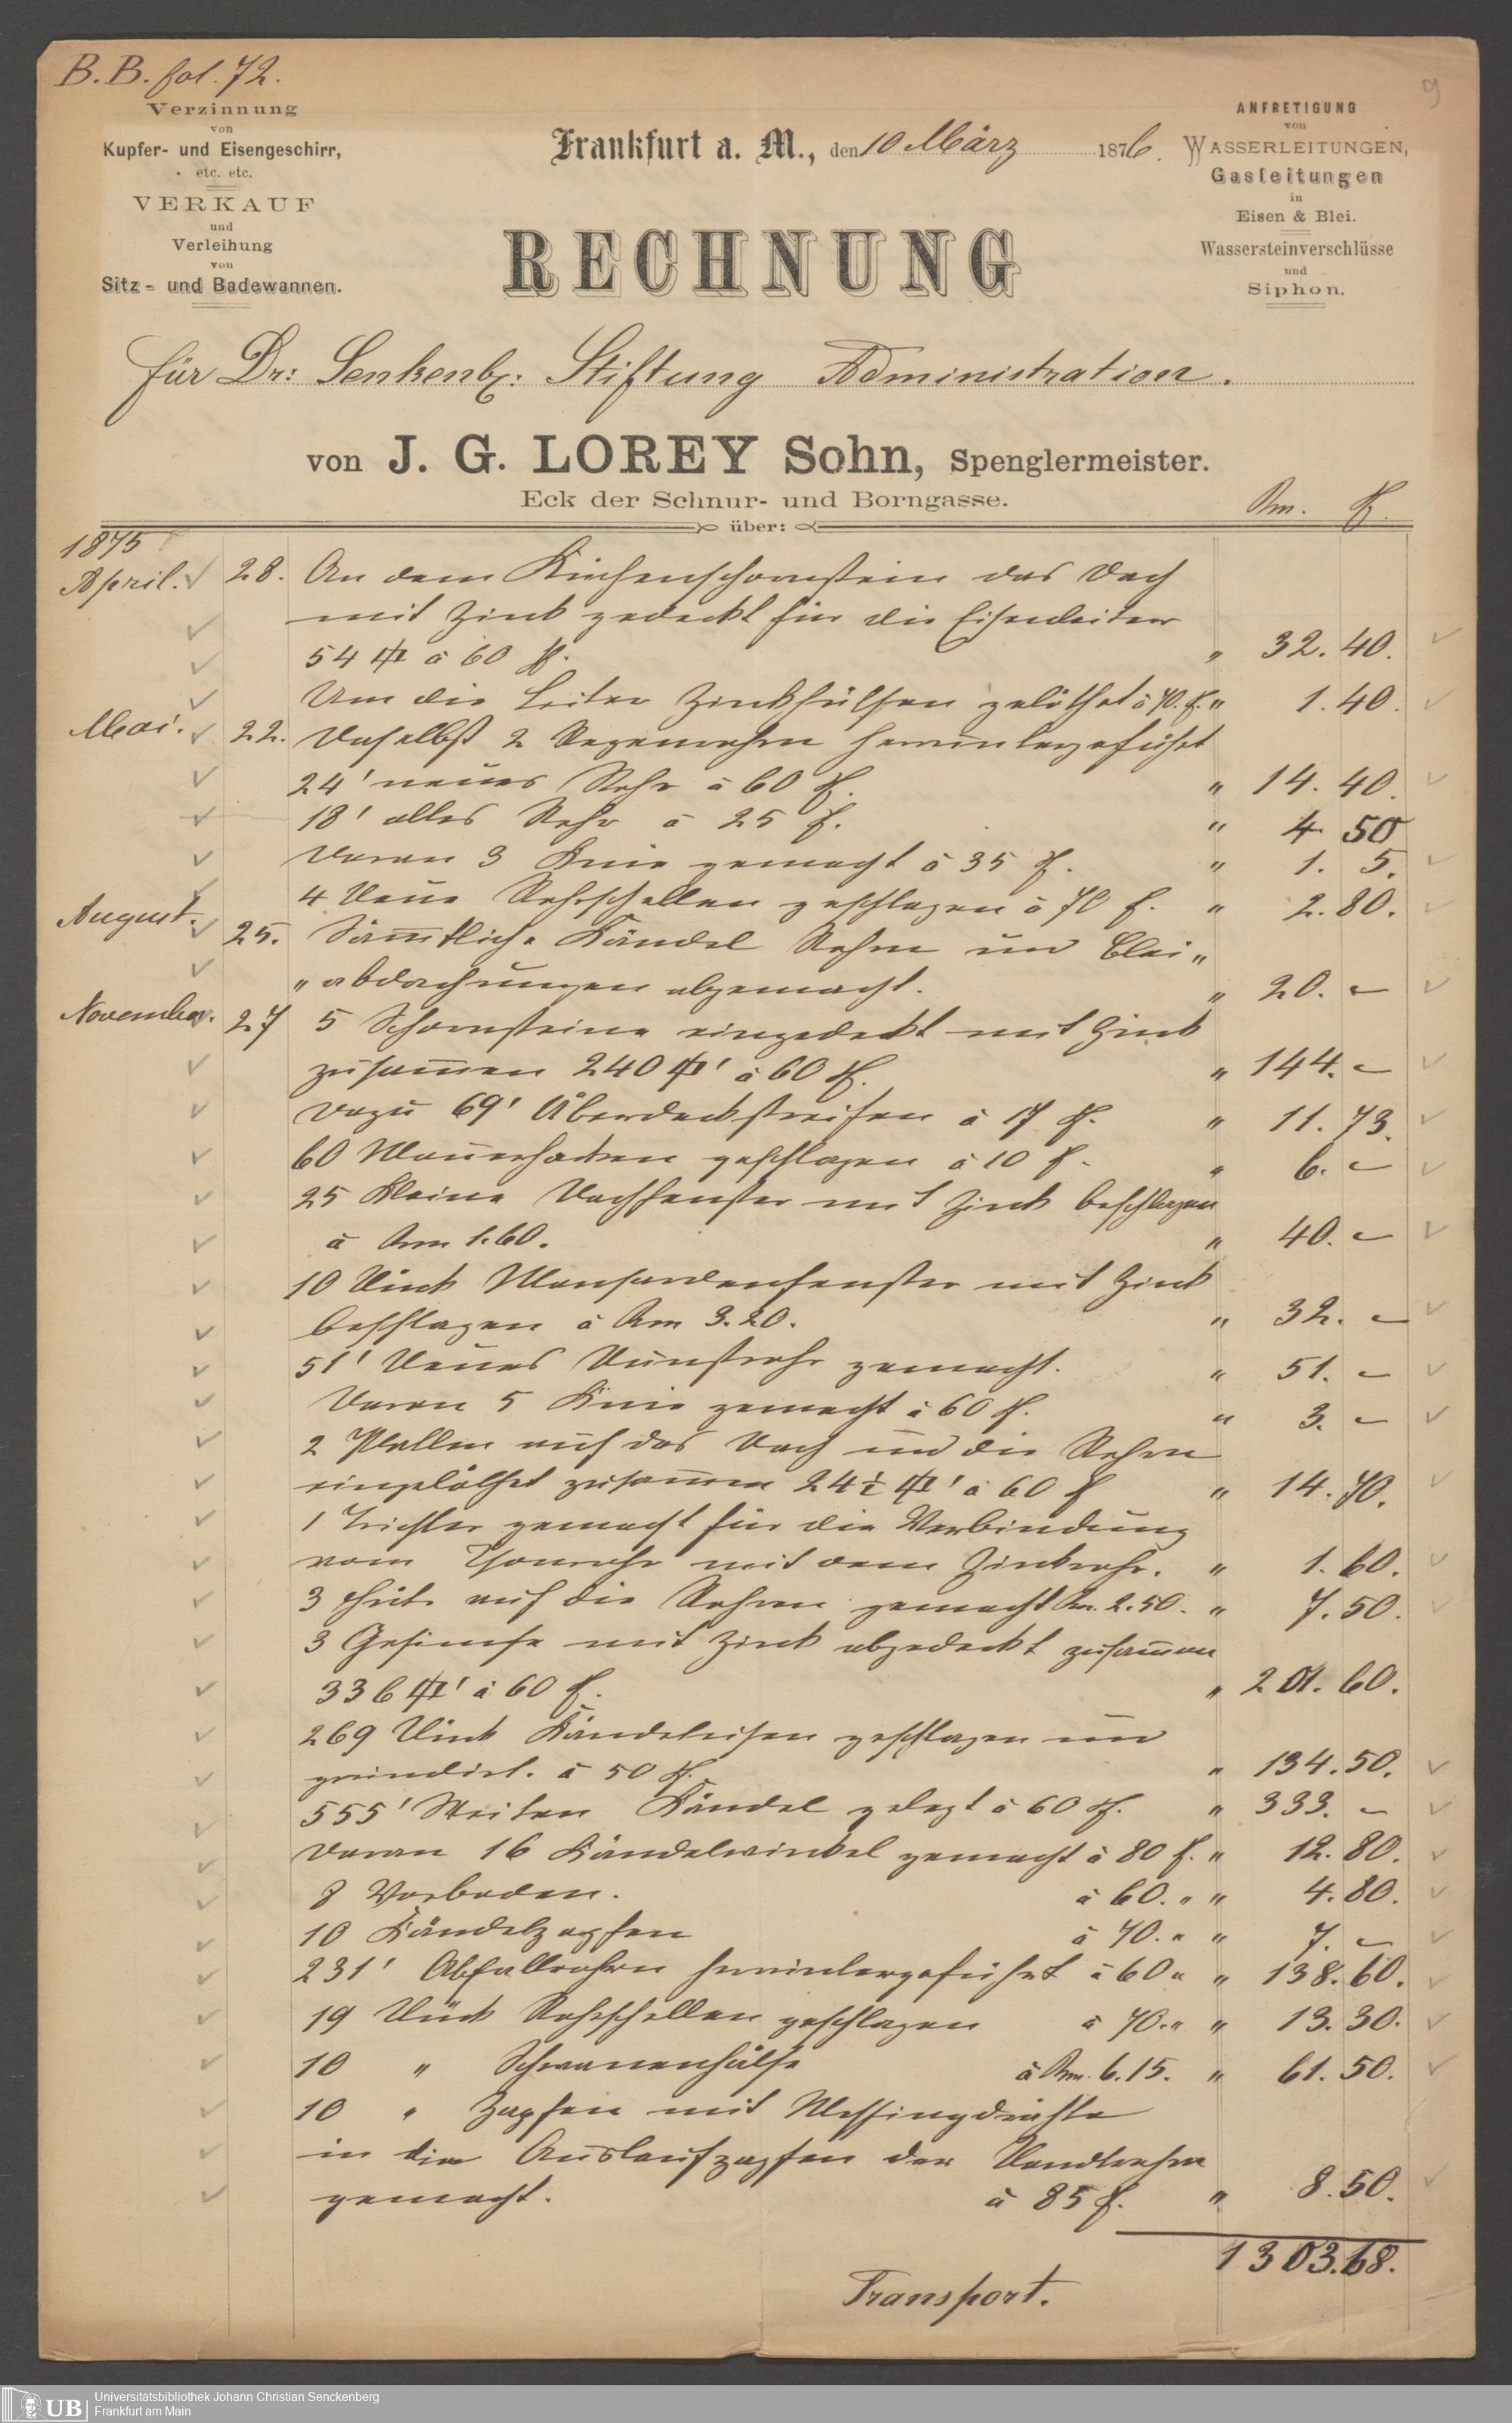 B. B. fol. 72.
9
Verzinnung
von
Kupfer- und Eisengeschirr,
etc. etc.
VERKAUF
und
Verleihung
von
Sitz- und Badewannen.
Frankfurt a. M., den 10 März 1876.
ANFRETIGUNG
von
WASSERLEITUNGEN,
Gasleitungen
in
Eisen & Blei.
Wassersteinverschlüsse
und
Siphon.
RECHNUNG
für Dr: Senkenbg: Stiftung Administration.
von J. G. LOREY Sohn, Spenglermeister.
Eck der Schnur- und Borngasse.
über:
Rm. ₰.
1875
April. 28. An dem Küchenschornstein das Dach
mit Zink gedeckt für die Eisenleiter
54 a 60 ₰. " 32. 40.
Um die Leiter Zinkhülsen gelöthet a 70. ₰. " 1. 40.
Mai. 22. Daselbst 2 Regenrohre heruntergeführt
24' neues Rohr a 60 ₰. " 14. 40.
18' altes Rohr a 25 ₰. " 4. 50
Daran 3 Knie gemacht a 35 ₰. " 1. 5.
4 Neue Rohrschellen geschlagen a 70 ₰. " 2. 80.
August. 25. Sämmtliche Kändel Rohre und Blei "
" abdachungen abgemacht. " 20. –
November. 27 5 Schornsteine eingedeckt mit Zink
zusammen 240 ' a 60 ₰. " 144. –
Dazu 69' Überdeckstreifen a 17 ₰. " 11. 73.
60 Mauerhacken geschlagen a 10 ₰. " 6. –
25 Kleine Dachfenster mit Zink beschlagen
a Rm 1.60. " 40. –
10 Stück Mansardenfenster mit Zink
beschlagen a Rm 3.20. " 32. –
51' Neues Dunstrohr gemacht. " 51. –
Daran 5 Knie gemacht a 60 ₰. " 3. –
2 Platten auf das Dach und die Rohre
eingelöthet zusammen 24 ½ ' a 60 ₰ " 14. 70.
1 Trichter gemacht für die Verbindung
vom Thonrohr mit dem Zinkrohr. " 1. 60.
3 Hüte auf die Rohren gemacht Rm. 2.50. " 7. 50.
3 Gesimse mit Zink abgedeckt zusammen
336 ' a 60 ₰. " 201. 60.
269 Stück Kändeleisen geschlagen und
grundirt. a 50 ₰. " 134. 50.
555' Weiten Kändel gelegt a 60 ₰. " 333. –
Daran 16 Kändelwinkel gemacht a 80 ₰. " 12. 80.
8 Vorboden. a 60. " " 4. 80.
10 Kändelzapfen a 70. " " 7. –
231' Abfallrohre heruntergeführt a 60 " " 138. 60.
19 Stück Rohrschellen geschlagen a 70. " " 13. 30.
10 " Schwanenhälse a Rm. 6.15. " 61. 50.
10 " Zapfen mit Messingdrähte
in die Auslaufzapfen der Standrohre
gemacht. a 85 ₰. " 8. 50.
1303. 68.
Transport.
UB
Universitätsbibliothek Johann Christian Senckenberg
Frankfurt am Main